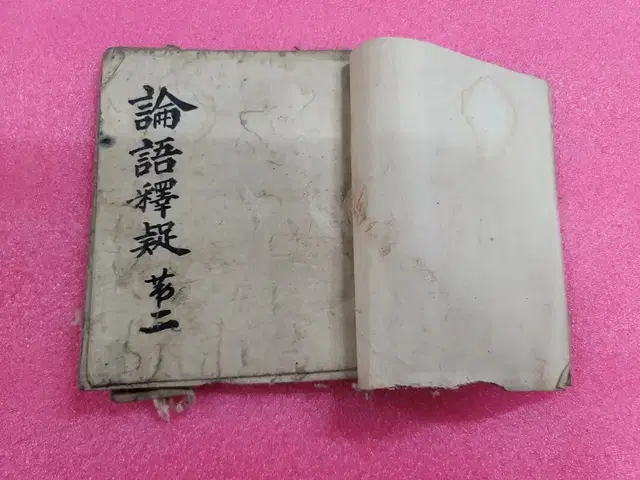 論語釋疑 苐二